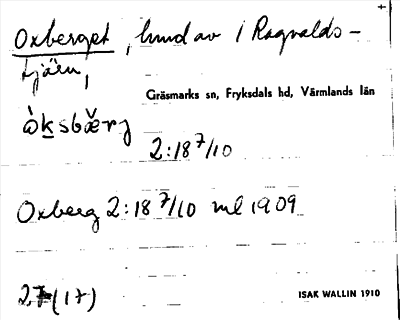 Oxberget, hmd av i Ragvalds-
tjärn,
Gräsmarks sn, Fryksdals hd, Värmlands län
2:18 7/10
Oxberg 2:18 7/10 ml 1909
(17)
ISAK WALLIN 1910